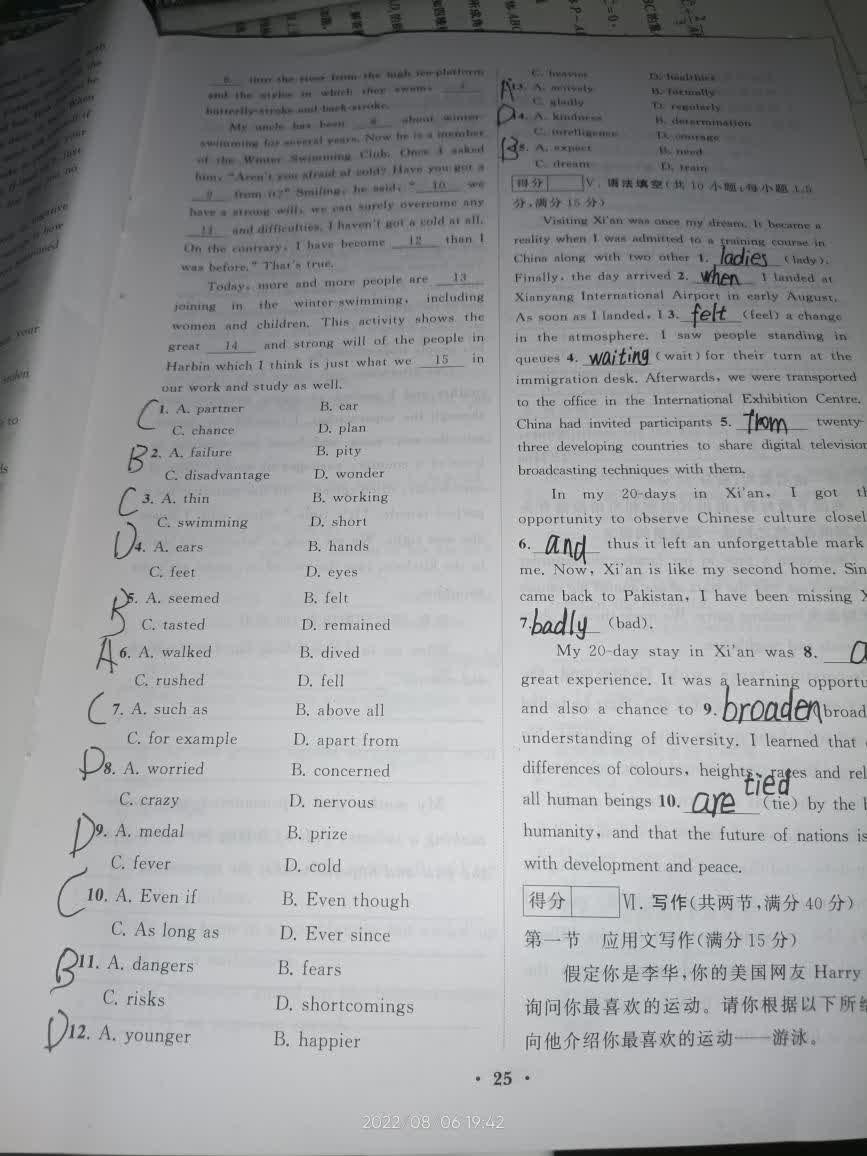 6 into the river from the high ice-platform
and the styles in which they swam, 7
butterfly-stroke and back-stroke.
My uncle has been 8 about winter
swimming for several years. Now he is a member
of the Winter Swimming Club. Once I asked
him, "Aren't you afraid of cold? Have you got a
9 from it?" Smiling, he said, " 10 we
have a strong will, we can surely overcome any
11 and difficulties. I haven't got a cold at all.
On the contrary, I have become 12 than I
was before." That's true.
Today, more and more people are 13
joining in the winter-swimming, including
women and children. This activity shows the
great 14 and strong will of the people in
Harbin which I think is just what we 15 in
our work and study as well.
C 1. A. partner B. car
C. chance D. plan
B 2. A. failure B. pity
C. disadvantage D. wonder
C 3. A. thin B. working
C. swimming D. short
D 4. A. ears B. hands
C. feet D. eyes
B 5. A. seemed B. felt
C. tasted D. remained
A 6. A. walked B. dived
C. rushed D. fell
C 7. A. such as B. above all
C. for example D. apart from
D 8. A. worried B. concerned
C. crazy D. nervous
D 9. A. medal B. prize
C. fever D. cold
C 10. A. Even if B. Even though
C. As long as D. Ever since
B 11. A. dangers B. fears
C. risks D. shortcomings
D 12. A. younger B. happier
C. heavier D. healthier
A 13. A. actively B. formally
C. gladly D. regularly
D 14. A. kindness B. determination
C. intelligence D. courage
B 15. A. expect B. need
C. dream D. train
得分 Ⅴ. 语法填空(共 10 小题;每小题 1.5
分,满分 15 分)
Visiting Xi'an was once my dream. It became a
reality when I was admitted to a training course in
China along with two other 1. ladies (lady).
Finally, the day arrived 2. when I landed at
Xianyang International Airport in early August.
As soon as I landed, I 3. felt (feel) a change
in the atmosphere. I saw people standing in
queues 4. waiting (wait) for their turn at the
immigration desk. Afterwards, we were transported
to the office in the International Exhibition Centre.
China had invited participants 5. from twenty-
three developing countries to share digital television
broadcasting techniques with them.
In my 20-days in Xi'an, I got
opportunity to observe Chinese culture
6. and thus it left an unforgettable mark
me. Now, Xi'an is like my second home.
came back to Pakistan, I have been missing
7. badly (bad).
My 20-day stay in Xi'an was 8. a
great experience. It was a learning
and also a chance to 9. broaden (broad
understanding of diversity. I learned that
differences of colours, heights, races and
tied
all human beings 10. are (tie) by the
humanity, and that the future of nations is
with development and peace.
得分 Ⅵ. 写作(共两节,满分 40 分)
第一节 应用文写作(满分 15 分)
假定你是李华,你的美国网友 Harry
询问你最喜欢的运动。请你根据以下所给
向他介绍你最喜欢的运动——游泳。
· 25 ·
2022 08 06 19:42